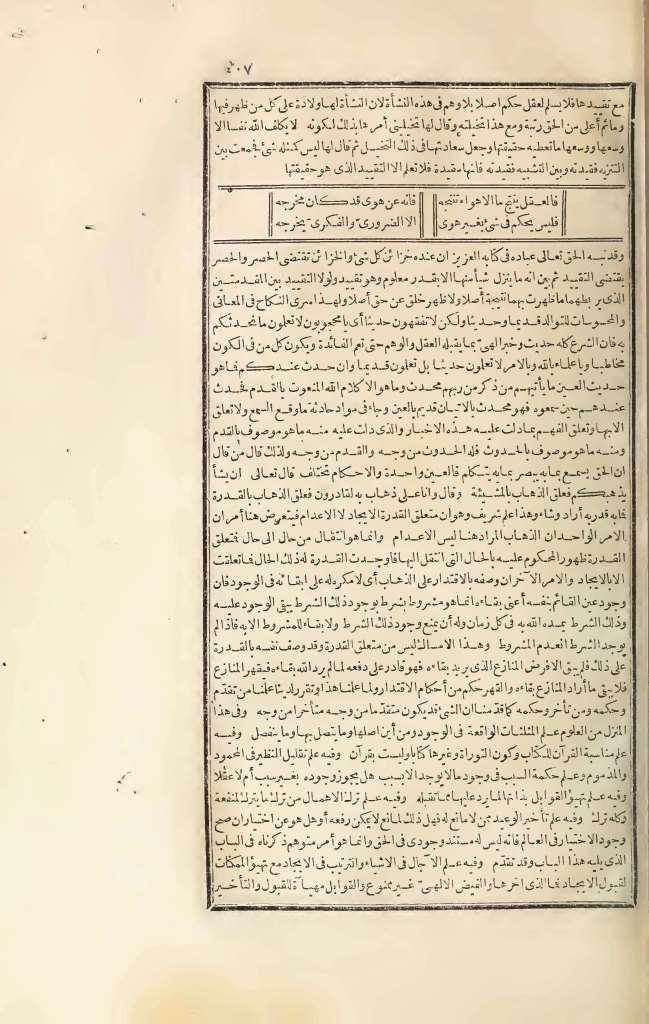 ٤٠٧
مع تقييدها فلا يسلم لعقل حكم أصلا بلا وهم فى هذه النشأة لان النشأة لها ولادة على كل من ظهر فيها
وما ثم أعلى من الحق رتبة ومع هذا تخيلته وقال لها تخيلينى أمرها بذلك لكونه لا يكلف الله نفسا الا
وسعها ووسعها ما تعطيه حقيقتها وجعل سعادتها فى ذلك التخيل ثم قال لها ليس كمثله شئ فجمعت بين
التنزيه فقيدته وبين التشبيه فقيدته فانها مقيدة فلا تعلم الا التقييد الذى هو حقيقتها
فالعقل ينتج ما الاهواء تنتجه فانه عن هوى قد كان مخرجه
فليس يحكم فى شئ بغير هوى الا الضرورى والفكرى يخرجه
وقد نبه الحق تعالى عباده فى كتابه العزيز ان عنده خزائن كل شئ والخزائن تقتضى الحصر والحصر
يقتضى التقييد ثم بين انه ما ينزل شيأ منها الا بقدر معلوم وهو تقييد ولولا التقييد بين المقدمتين
الذى يربطهما ما ظهرت بهما نتيجة أصلا ولا ظهر خلق عن حق أصلا ولهذا سرى النكاح فى المعانى
والمحسوسات للتوالد قديما وحديثا ولكن لا تفقهون حديثا أى يا محجوبون لا تعلمون ما نحدثكم
به فان الشرع كله حديث وخبر الهى بما يقبله العقل والوهم حتى تعم الفائدة ويكون كل من فى الكون
مخاطبا ويا علماء بالله وبالامر لا تعلمون حديثا بل تعلمون قديما وان حدث عندكم فما هو
حديث العين ما يأتيهم من ذكر من ربهم محدث وما هو الا كلام الله المنعوت بالقدم فحدث
عندهم حين سمعوه فهو محدث بالاتيان قديم بالعين وجاء فى مواد حادثة ما وقع السمع ولا تعلق
الا بها وتعلق الفهم بما دلت عليه هذه الاخبار والذى دلت عليه منه ما هو موصوف بالقدم
ومنه ما هو موصوف بالحدوث فله الحدوث من وجه والقدم من وجه ولذلك قال من قال
ان الحق يسمع بما به يبصر بما به يتكلم فالعين واحدة والاحكام تختلف قال تعالى ان يشأ
يذهبكم فعلق الذهاب بالمشيئة وقال وانا على ذهاب به لقادرون فعلق الذهاب بالقدرة
فما به قدر به أراد وشاء وهذا علم شريف وهو ان متعلق القدرة الايجاد لا الاعدام فيتعرض هنا أمران
الامر الواحد ان الذهاب المراد هنا ليس الاعدام وانما هو انتقال من حال الى حال فتعلق
القدرة ظهور المحكوم عليه بالحال التى انتقل اليها فأوجدت القدرة له ذلك الحال فما تعلقت
الا بالايجاد والامر الآخر ان وصفه بالاقتدار على الذهاب أى لا مكره له على ابقائه فى الوجود فان
وجود عين القائم بنفسه أعنى بقاءه انما هو مشروط بشرط بوجود ذلك الشرط يبقى الوجود عليه
وذلك الشرط يمده الله به فى كل زمان وله أن يمنع وجود ذلك الشرط ولا بقاء للمشروط الا به فاذا لم
يوجد الشرط انعدم المشروط وهذا الامساك ليس من متعلق القدرة وقد وصف نفسه بالقدرة
على ذلك فلم يبق الا فرض المنازع الذى يريد بقاءه فهو قادر على دفعه لما لم يرد الله بقاءه فيقهر المنازع
فلا يبقى ما أراد المنازع بقاءه والقهر حكم من أحكام الاقتدار ولما علمنا هذا وتقرر لدينا علمنا من تقدم
وحكمه ومن تأخر وحكمه كما قدمنا ان الشئ قد يكون متقدما من وجه متأخرا من وجه وفى هذا
المنزل من العلوم علم المثلثات الواقعة فى الوجود ومن أين أصلها وما يتصل بها وما ينفصل وفيه
علم مناسبة القرآن للكتاب وكون التوراة وغيرها كتابا وليست بقرآن وفيه علم تقليل النظير فى المحمود
والمذموم وعلم حكمة السبب فى وجود ما لا يوجد الا بسبب هل يجوز وجوده بغير سبب أم لا عقلا
وفيه علم تهيؤ القوابل بذاتها لما يرد عليها مما تقبله وفيه علم ترك الاهمال من ترك ما يترك لمنفعة
وكله ترك وفيه علم تأخير الوعيد ممن لا مانع له فهل ذلك لمانع لا يمكن رفعه أو هل هو عن اختيار ان صح
وجود الاختيار فى العالم فانه ليس له مستند وجودى فى الحق وانما هو أمر متوهم ذكرناه فى الباب
الذى يليه هذا الباب وقد تقدم وفيه علم الآجال فى الاشياء والترتيب فى الايجاد مع تهيؤ الممكنات
لقبول الايجاد فما الذى أخرها والفيض الالهى غير ممنوع والقوابل مهيأة للقبول والتأخير